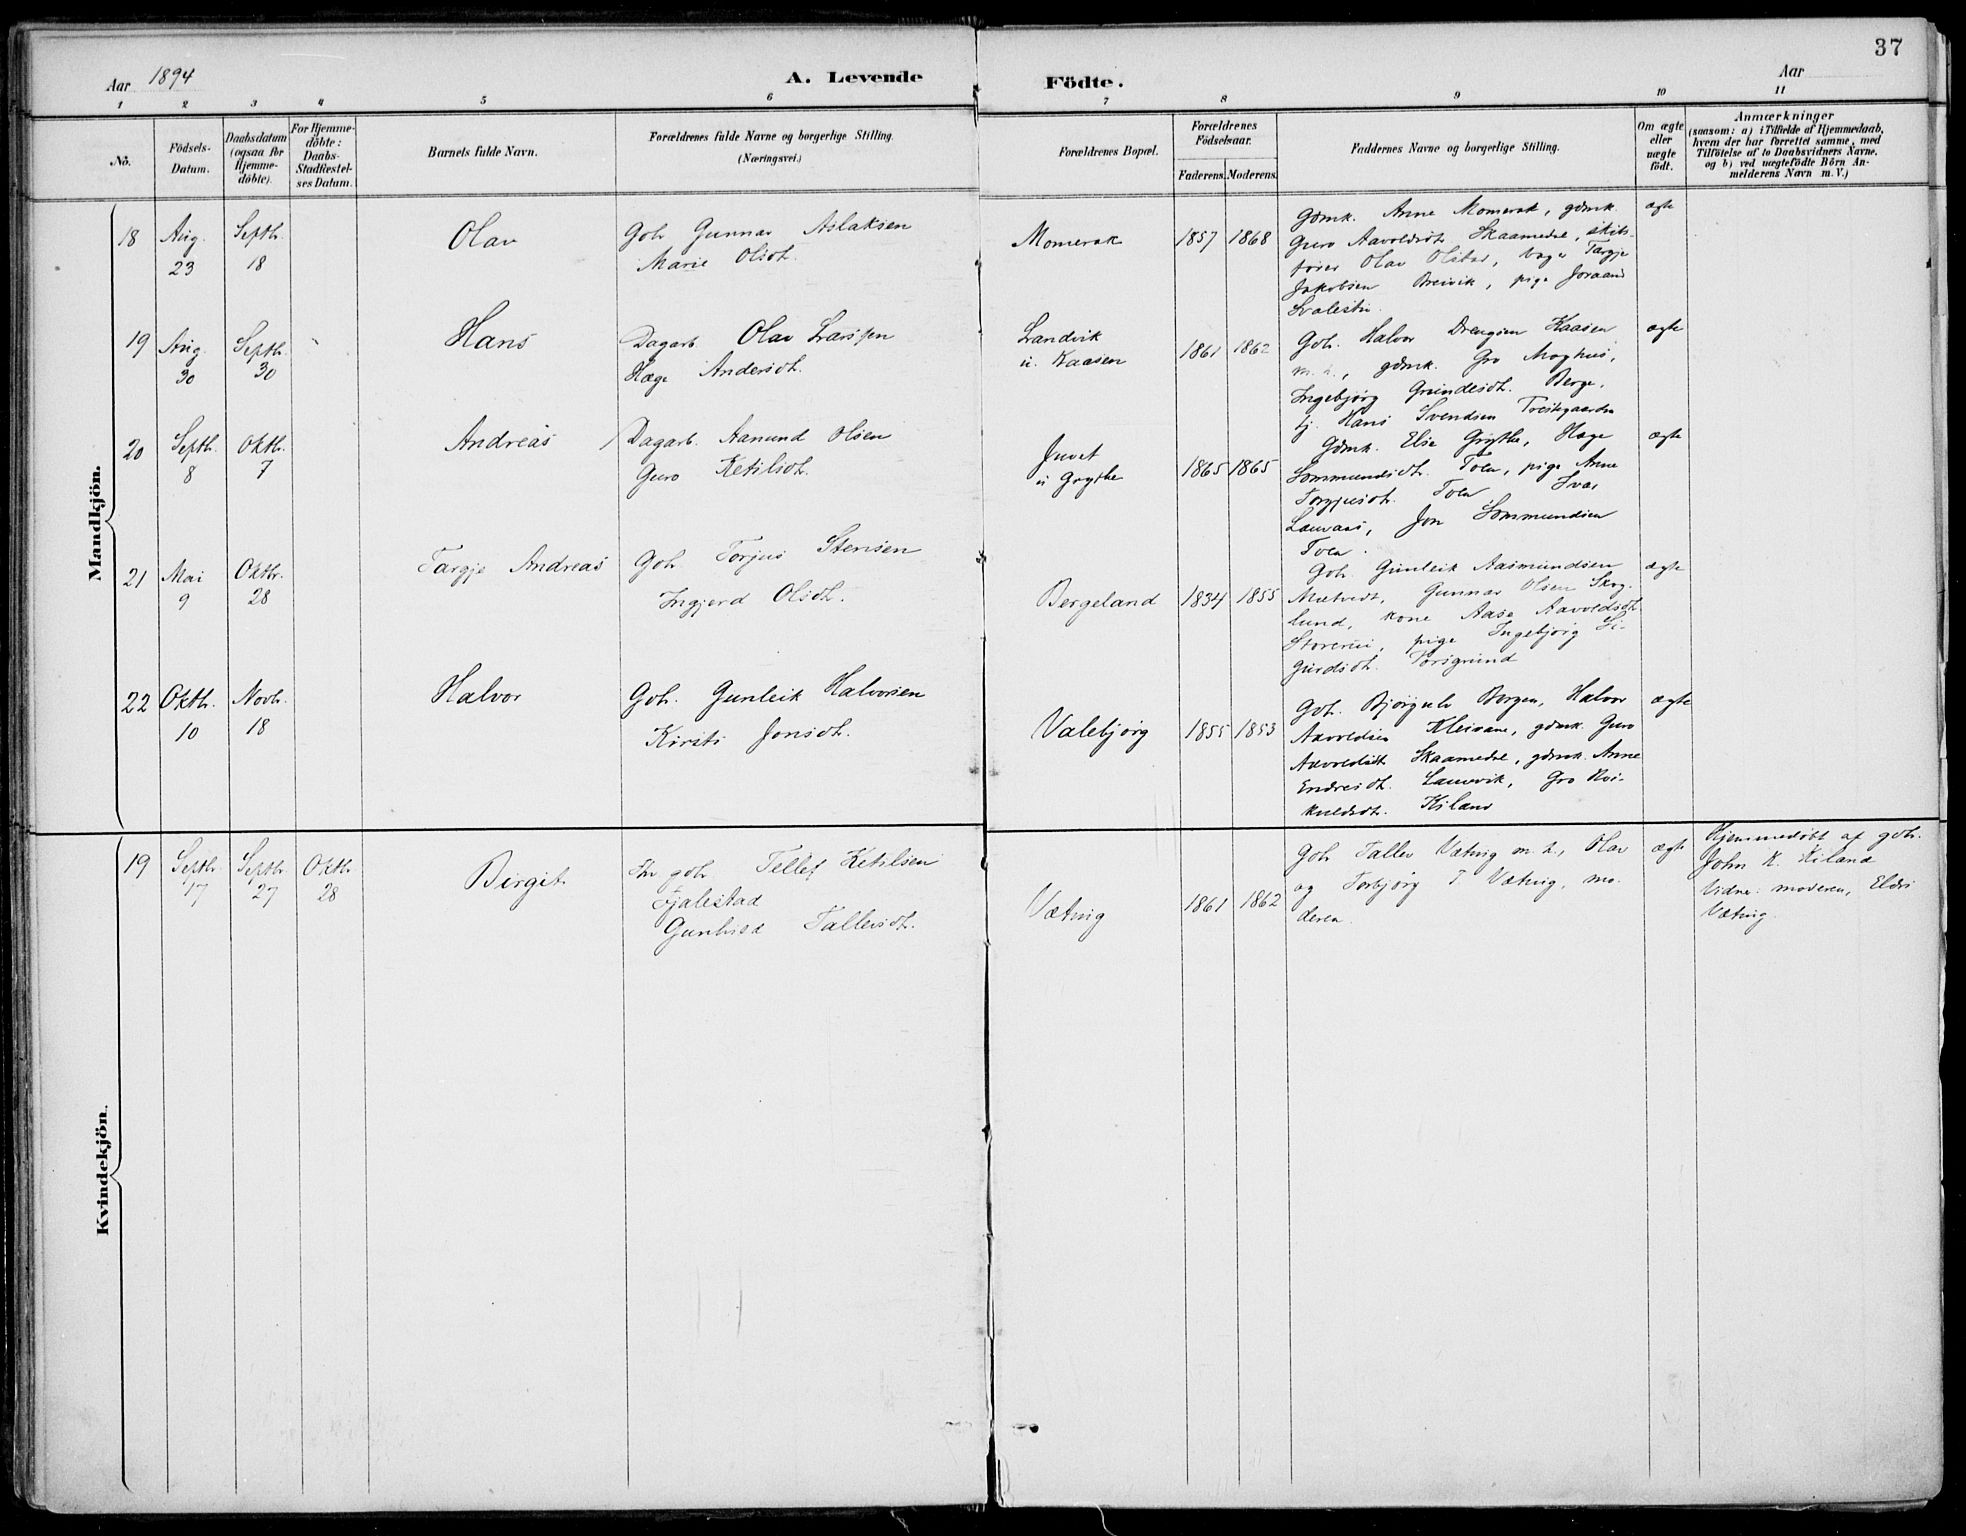 37
Aar 1894
A. Levende Födte.
Aar
1 2 3 4 5 6 7 8 9 10 11
No.
Födsels-
Datum.
Daabsdatum
(ogsaa for
Hjemme-
döbte).
For Hjemme-
döbte:
Daabs-
Stadfæstel-
ses Datum.
Barnets fulde Navn.
Forældrenes fulde Navne og borgerlige Stilling.
(Næringsvei.)
Forældrenes Bopæl.
Forældrenes
Födselsaar.
Faderens. Moderens.
Faddernes Navne og borgerlige Stilling.
Om ægte
eller
uægte
födt.
Anmærkninger
(saasom: a) i Tilfælde af Hjemmedaab,
hvem der har forrettet samme, med
Tilföielse af to Daabsvidners Navne.
og b) ved uægtefödte Börn An-
melderens Navn m. V.)
Mandkjön.
18 Aug. 23
Septbr. 18
Olav
Gbr Gunnar Aslaksen
Marie Olsdt.
Momerak
1857 1868
Gdmk. Anne Momerak, gdmk.
Guro Aavoldsdt Skaamedal, skits-
förer Olav Olstad, bager Targje
Jakobsen Breivik, pige Joraand
Svalestu
ægte
19 Aug. 30
Septbr. 30
Hans
Dagarb. Olav Larssen
Hæge Andersdt.
Sandvik
u. Kaasen
1861 1862
Gbr. Halvor Drengsen Kaasen
m. h., gdmk. Gro Moghus,
Ingebjørg Grundesdt. Berge,
tj. Hans Svendsen Treskgaarden
ægte
20 Septbr. 8
Oktbr. 7
Andreas
Dagarb. Aanund Olsen
Guro Ketilsdt.
Juvet
u Grythe
1865 1865
Gdmk. Else Grythe, Hæge
Sommundsdt. Toen, pige Anne
Torgjusdt. Toen Ivar
Lauvaas, Jon Sommundsen
Toen.
ægte
21 Mai 9
Oktbr. 28
Targje Andreas
Gbr Torjus Stensen
Ingjerd Olsdt.
Bergeland
1834 1855
Gbr. Gunleik Aasmundsen
Mætvedt, Gunnar Olsen Skog-
lund, kone Aase Aavoldsdt
Storerui, pige Ingebjørg Si-
gurdsdt. Porsgrund
ægte
22 Oktbr. 10
Novbr. 18
Halvor
Gbr. Gunleik Halvorsen
Kirsti Jonsdt.
Valebjørg
1855 1853
Gbr. Bjørgulv Borgen, Halvor
Aavoldsen Kleivane, gdmk. Guro
Aavoldsdt Skaamedal, gdmk. Anne
Endresdt. Lauvvik, Gro Kvi-
kuldsdt. Kiland
ægte
Kvindekjön.
19 Septbr. 17
Septbr 27
Oktbr 28
Birgit
Fhv gbr Tellef Ketilsen
Fjalestad
Gunhild Tallevsdt.
Vætnig
1861 1862
Gbr Tallev Vætnig m. h., Olav
og Torbjörg T. Vætnig, mo-
deren.
ægte
Hjemmedöbt af gbr.
John K. Kiland
Vidne: moderen, Eldri
Vætnig.